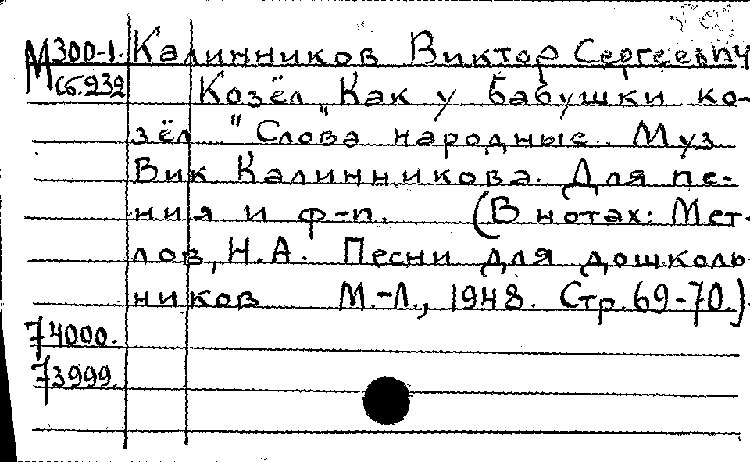 М300-1. Калинников Виктор Сергеевич
сб.939 Козёл „Как у бабушки ко-
зёл" Слова народные. Муз
Вик Калинникова. Для пе-
ния и ф-п. (В нотах: Мет-
лов, Н.А. Песни для дошколь
ников М.-Л., 1948. Стр. 69-70.)
74000.
73999.